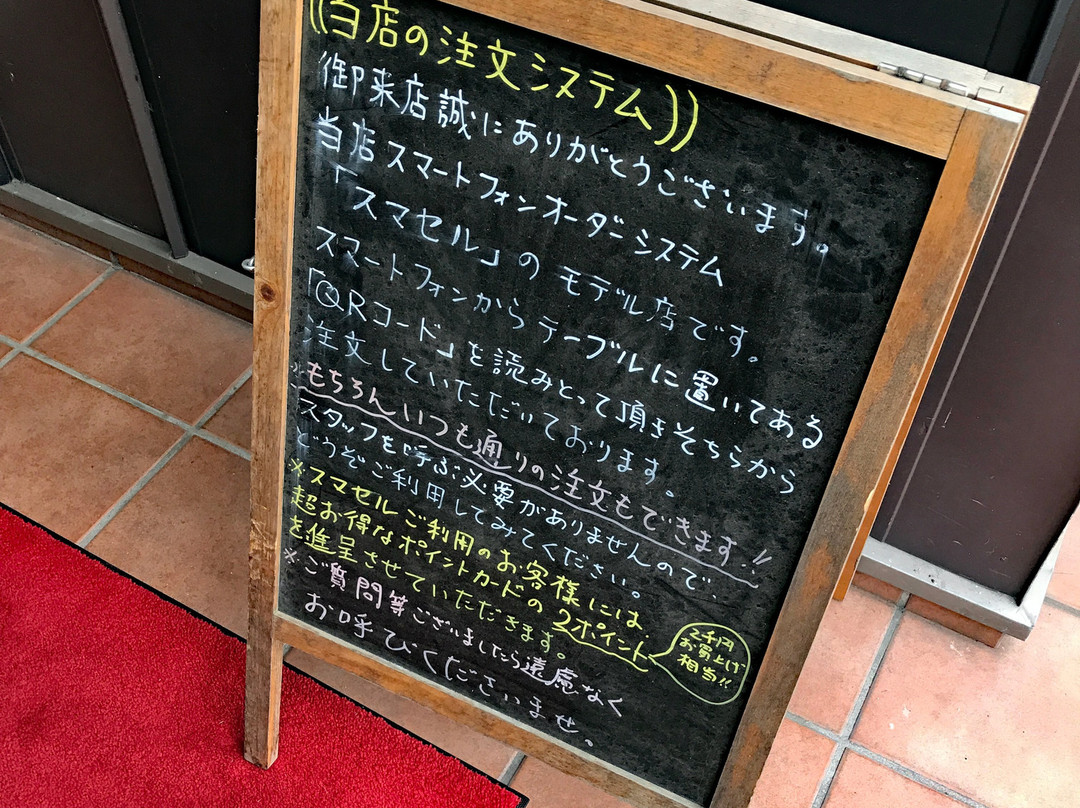 ((当店の注文システム))
御来店誠にありがとうございます。
当店スマートフォンオーダーシステム
「スマセル」のモデル店です。
スマートフォンからテーブルに置いてある
「QRコード」を読みとって頂きそちらから
注文していただいております。
※もちろんいつも通りの注文もできます!!
スタッフを呼ぶ必要がありませんので、
どうぞご利用してみてください。
※スマセルご利用のお客様には、
超お得なポイントカードの2ポイント
を進呈させていただきます。
2千円
お買上げ
相当!!
※ご質問等ございましたら遠慮なく
お呼びくださいませ。